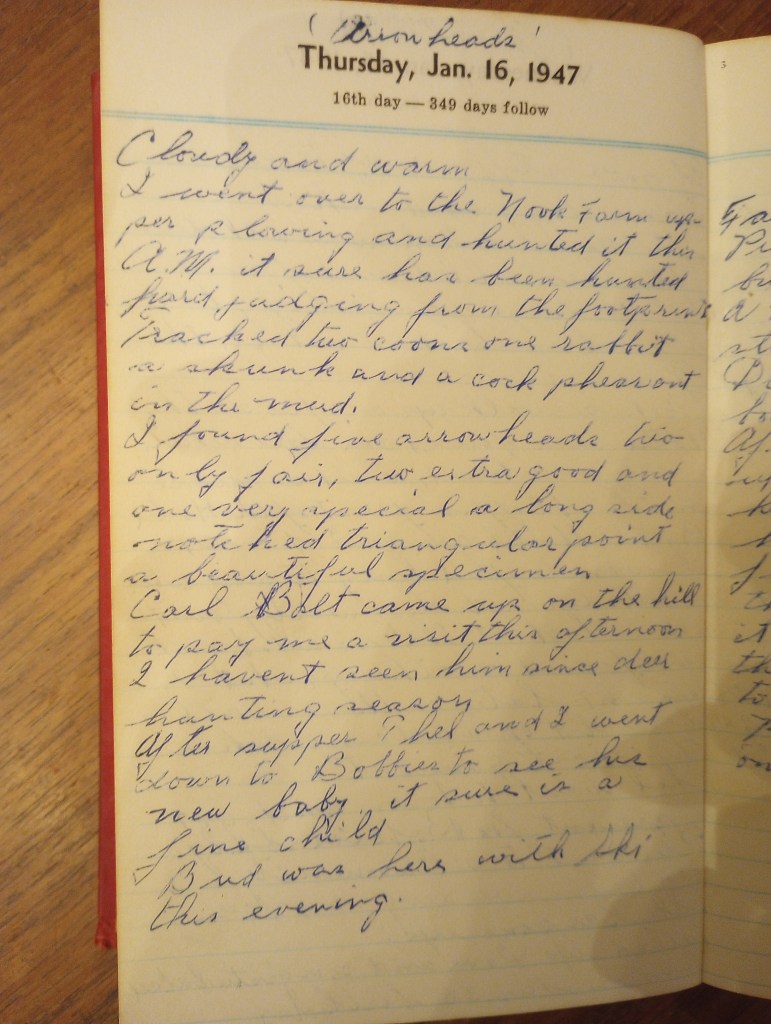 'Arrow heads'
Thursday, Jan. 16, 1947
16th day — 349 days follow
Cloudy and warm
I went over to the Nook Farm up-
per plowing and hunted it this
A.M. it sure has been hunted
hard judging from the footprints
Tracked two coons one rabbit
a skunk and a cock pheasant
in the mud.
I found five arrowheads two
only fair, two extra good and
one very special a long side
notched triangular point
a beautiful specimen
Carl Bilt came up on the hill
to pay me a visit this afternoon
I havent seen him since deer
hunting season
After supper Thel and I went
down to Bobbies to see his
new baby, it sure is a
fine child
Bud was here with Ski
this evening.